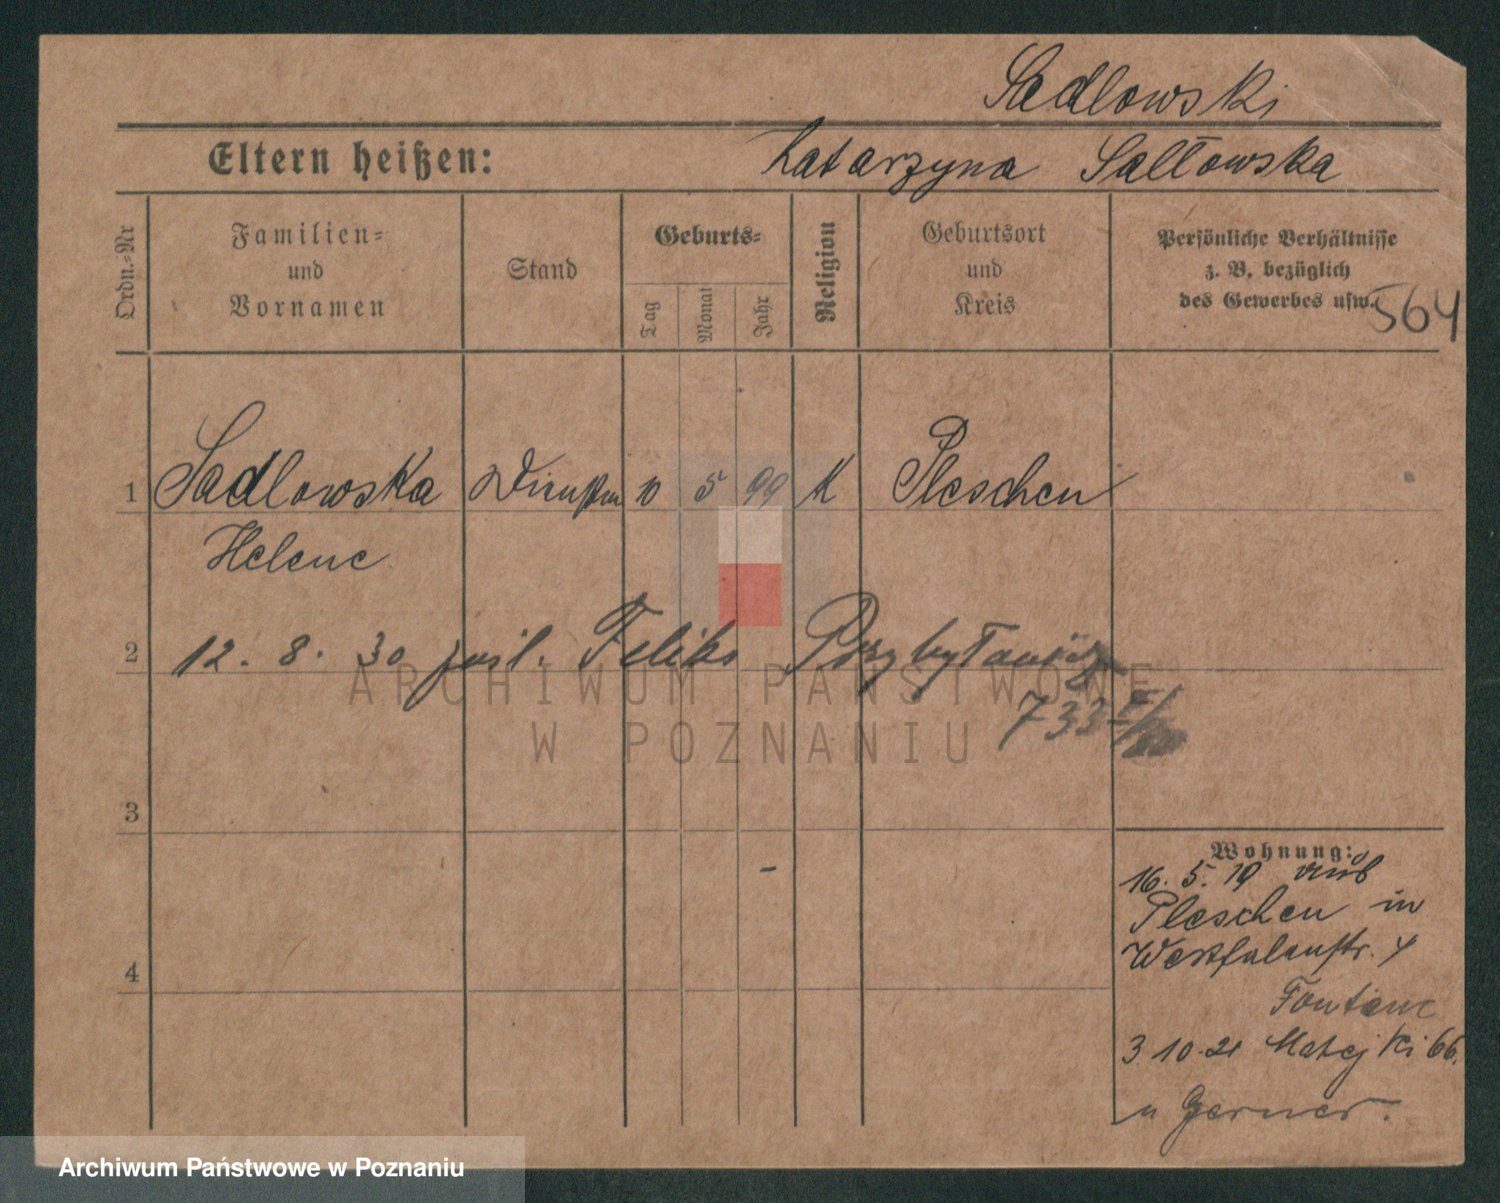 Sadlowski
Eltern heißen: Katarzyna Saltowska
Ordn.-Nr
Familien-
und
Vornamen
Stand
Geburts-
Tag
Monat
Jahr
Religion
Geburtsort
und
Kreis
Persönliche Verhältnisse
z. B. bezüglich
des Gewerbes usw.
564
1 Sadlowska 10 5 99 K Pleschen
Helene
2 12. 8. 30 Feliks
733
3
4
Wohnung:
16. 5. 19 aus
Pleschen in
Westfalenstr. 4
Fontane
3.10.21 Matejki 66.
u Gerner.
ARCHIWUM PAŃSTWOWE
W POZNANIU
Archiwum Państwowe w Poznaniu